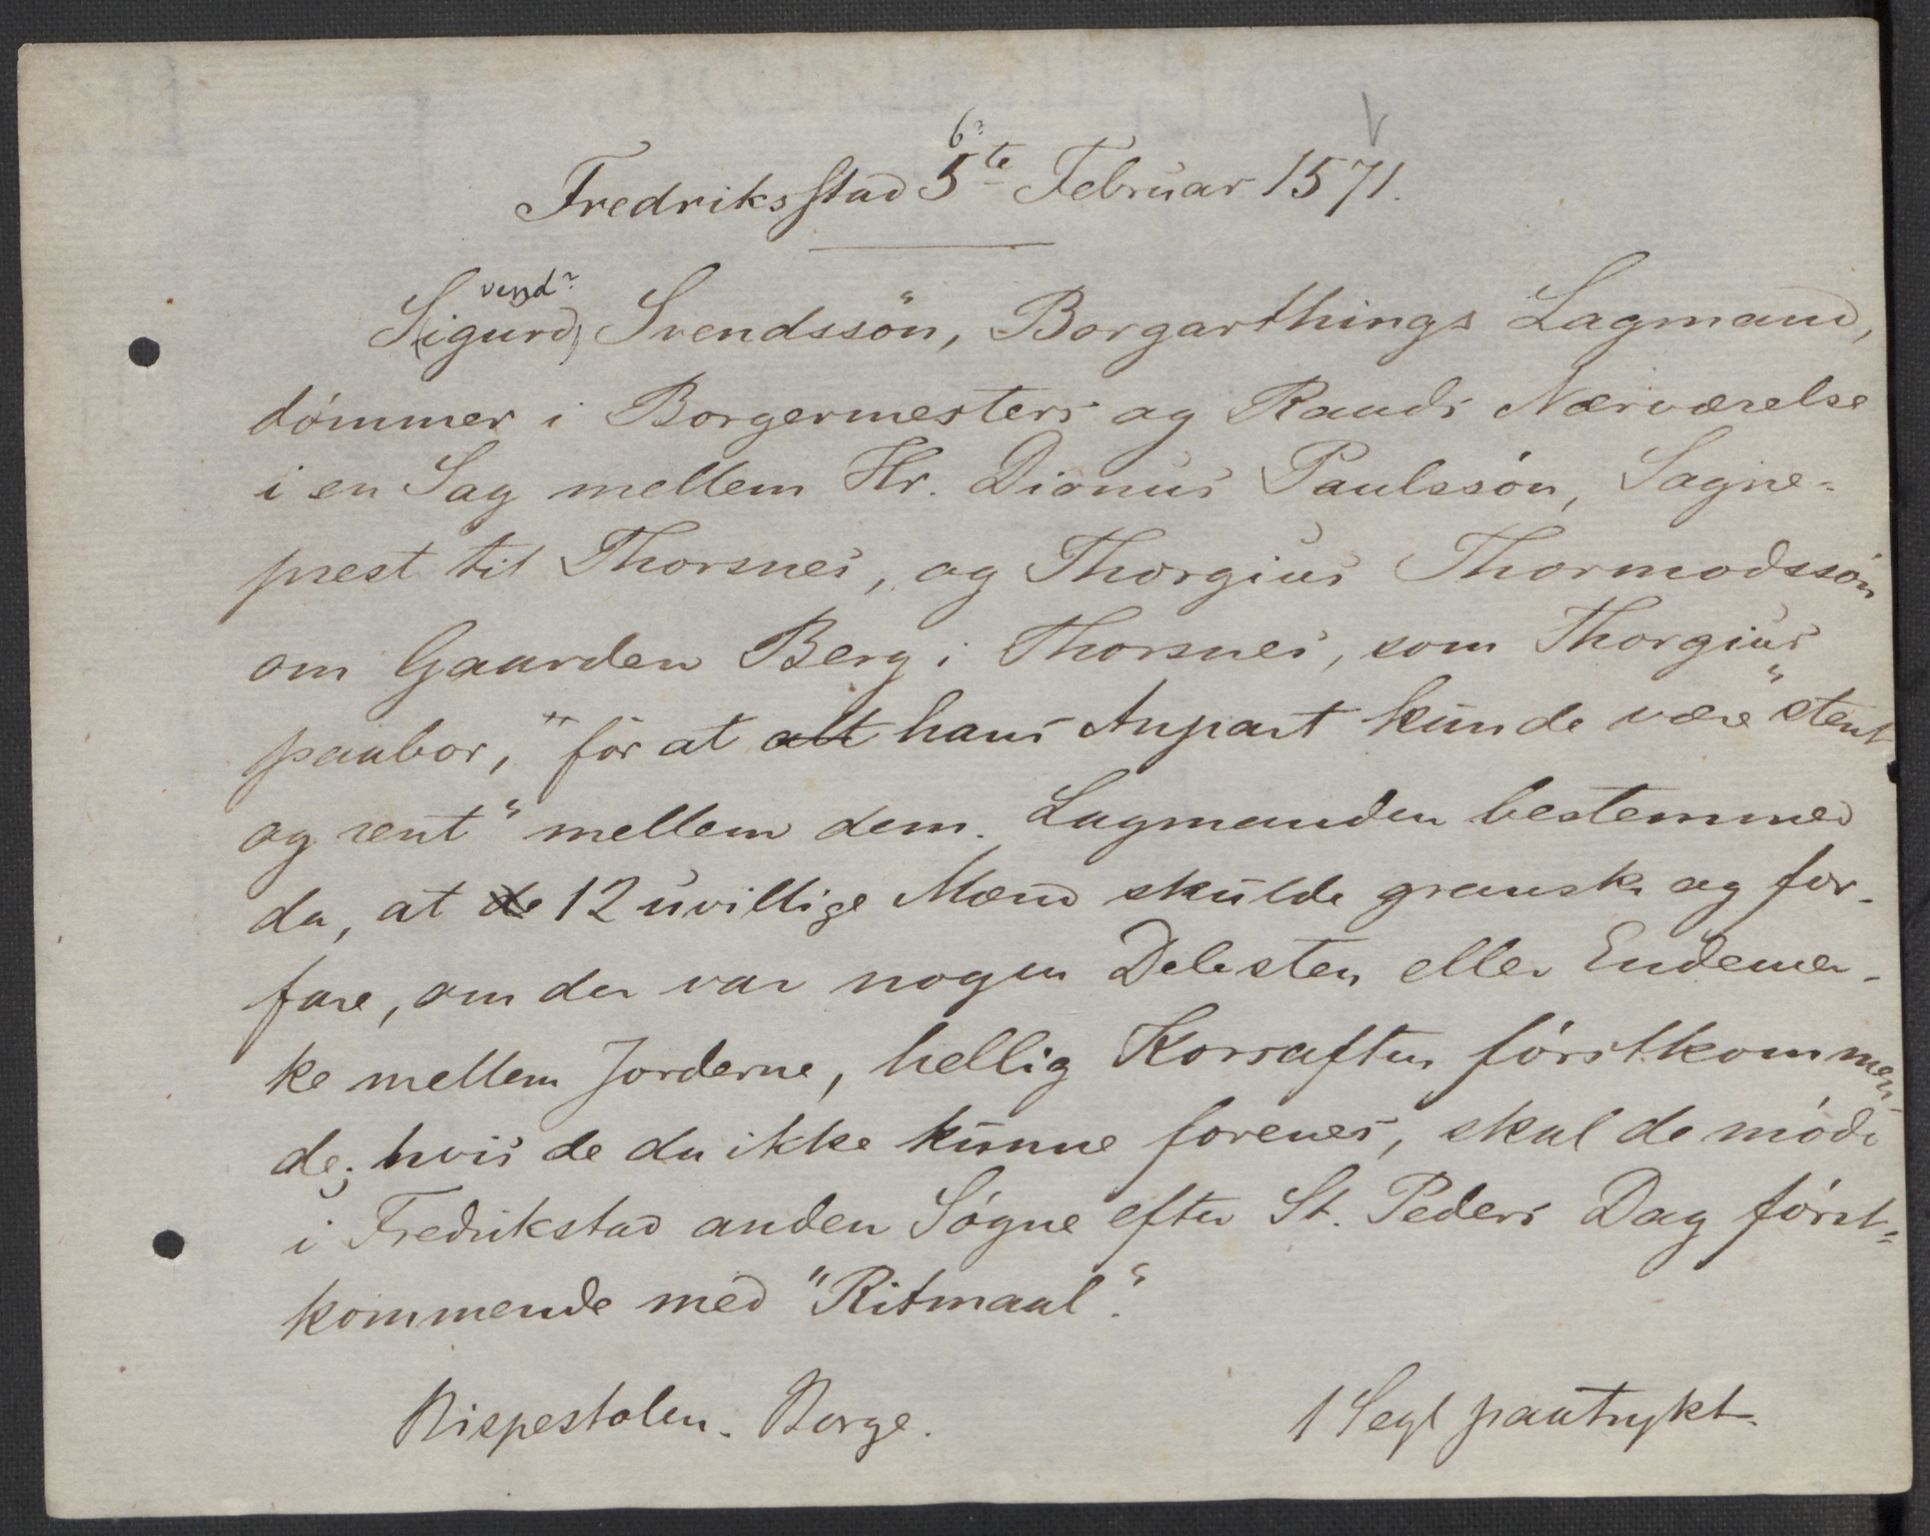 6?
Fredriksstad 5te Februar 1571.
vend?
S(igurd) Svendssön, Borgarthings Lagmand,
dømmer i Borgermesters og Raads Nærværelse
i en Sag mellem Hr. Dionus Paulssøn, Sogne-
prest til Thorsnes, og Thorgius Thormodssøn
om Gaarden Berg i Thorsnes, som Thorgius
paabor, "for at alt hans Anpart kunde være "stent
og rent" mellem dem. Lagmanden bestemmed
da, at de 12 uvillige Mænd skulde granske og for-
fare, om der var nogen Delesten eller Endemer-
ke mellem Jorderne, hellig Korsaften førstkommen-
de; hvis de da ikke kunne forenes, skal de møde
i Fredrikstad anden Søgne efter St. Peders Dag først-
kommende med "Ritmaal".
Bispestolen. Borge.
1 Segl paatrykt.